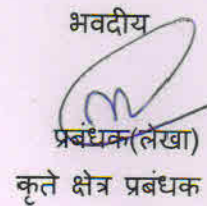 भवदीय
प्रबंधक(लेखा)
कृते क्षेत्र प्रबंधक